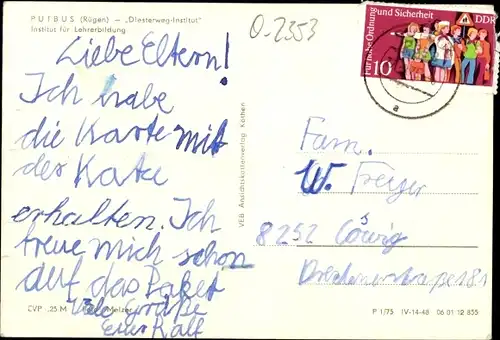 PUTBUS (Rügen) — „Diesterweg-Institut"
Institut für Lehrerbildung
0-2353
Für mehr Ordnung und Sicherheit
DDR
10
a
Liebe Eltern!
Ich habe
die Karte mit
der Kata
erhalten. Ich
freue mich schon
auf das Paket
Viele Grüße
Euer Ralf
VEB Ansichtskartenverlag Köthen
Fam.
W. Freyer
8252 Cöswig
EVP -,25 M
Melzer
P 1/75 IV-14-48 06 01 12 855